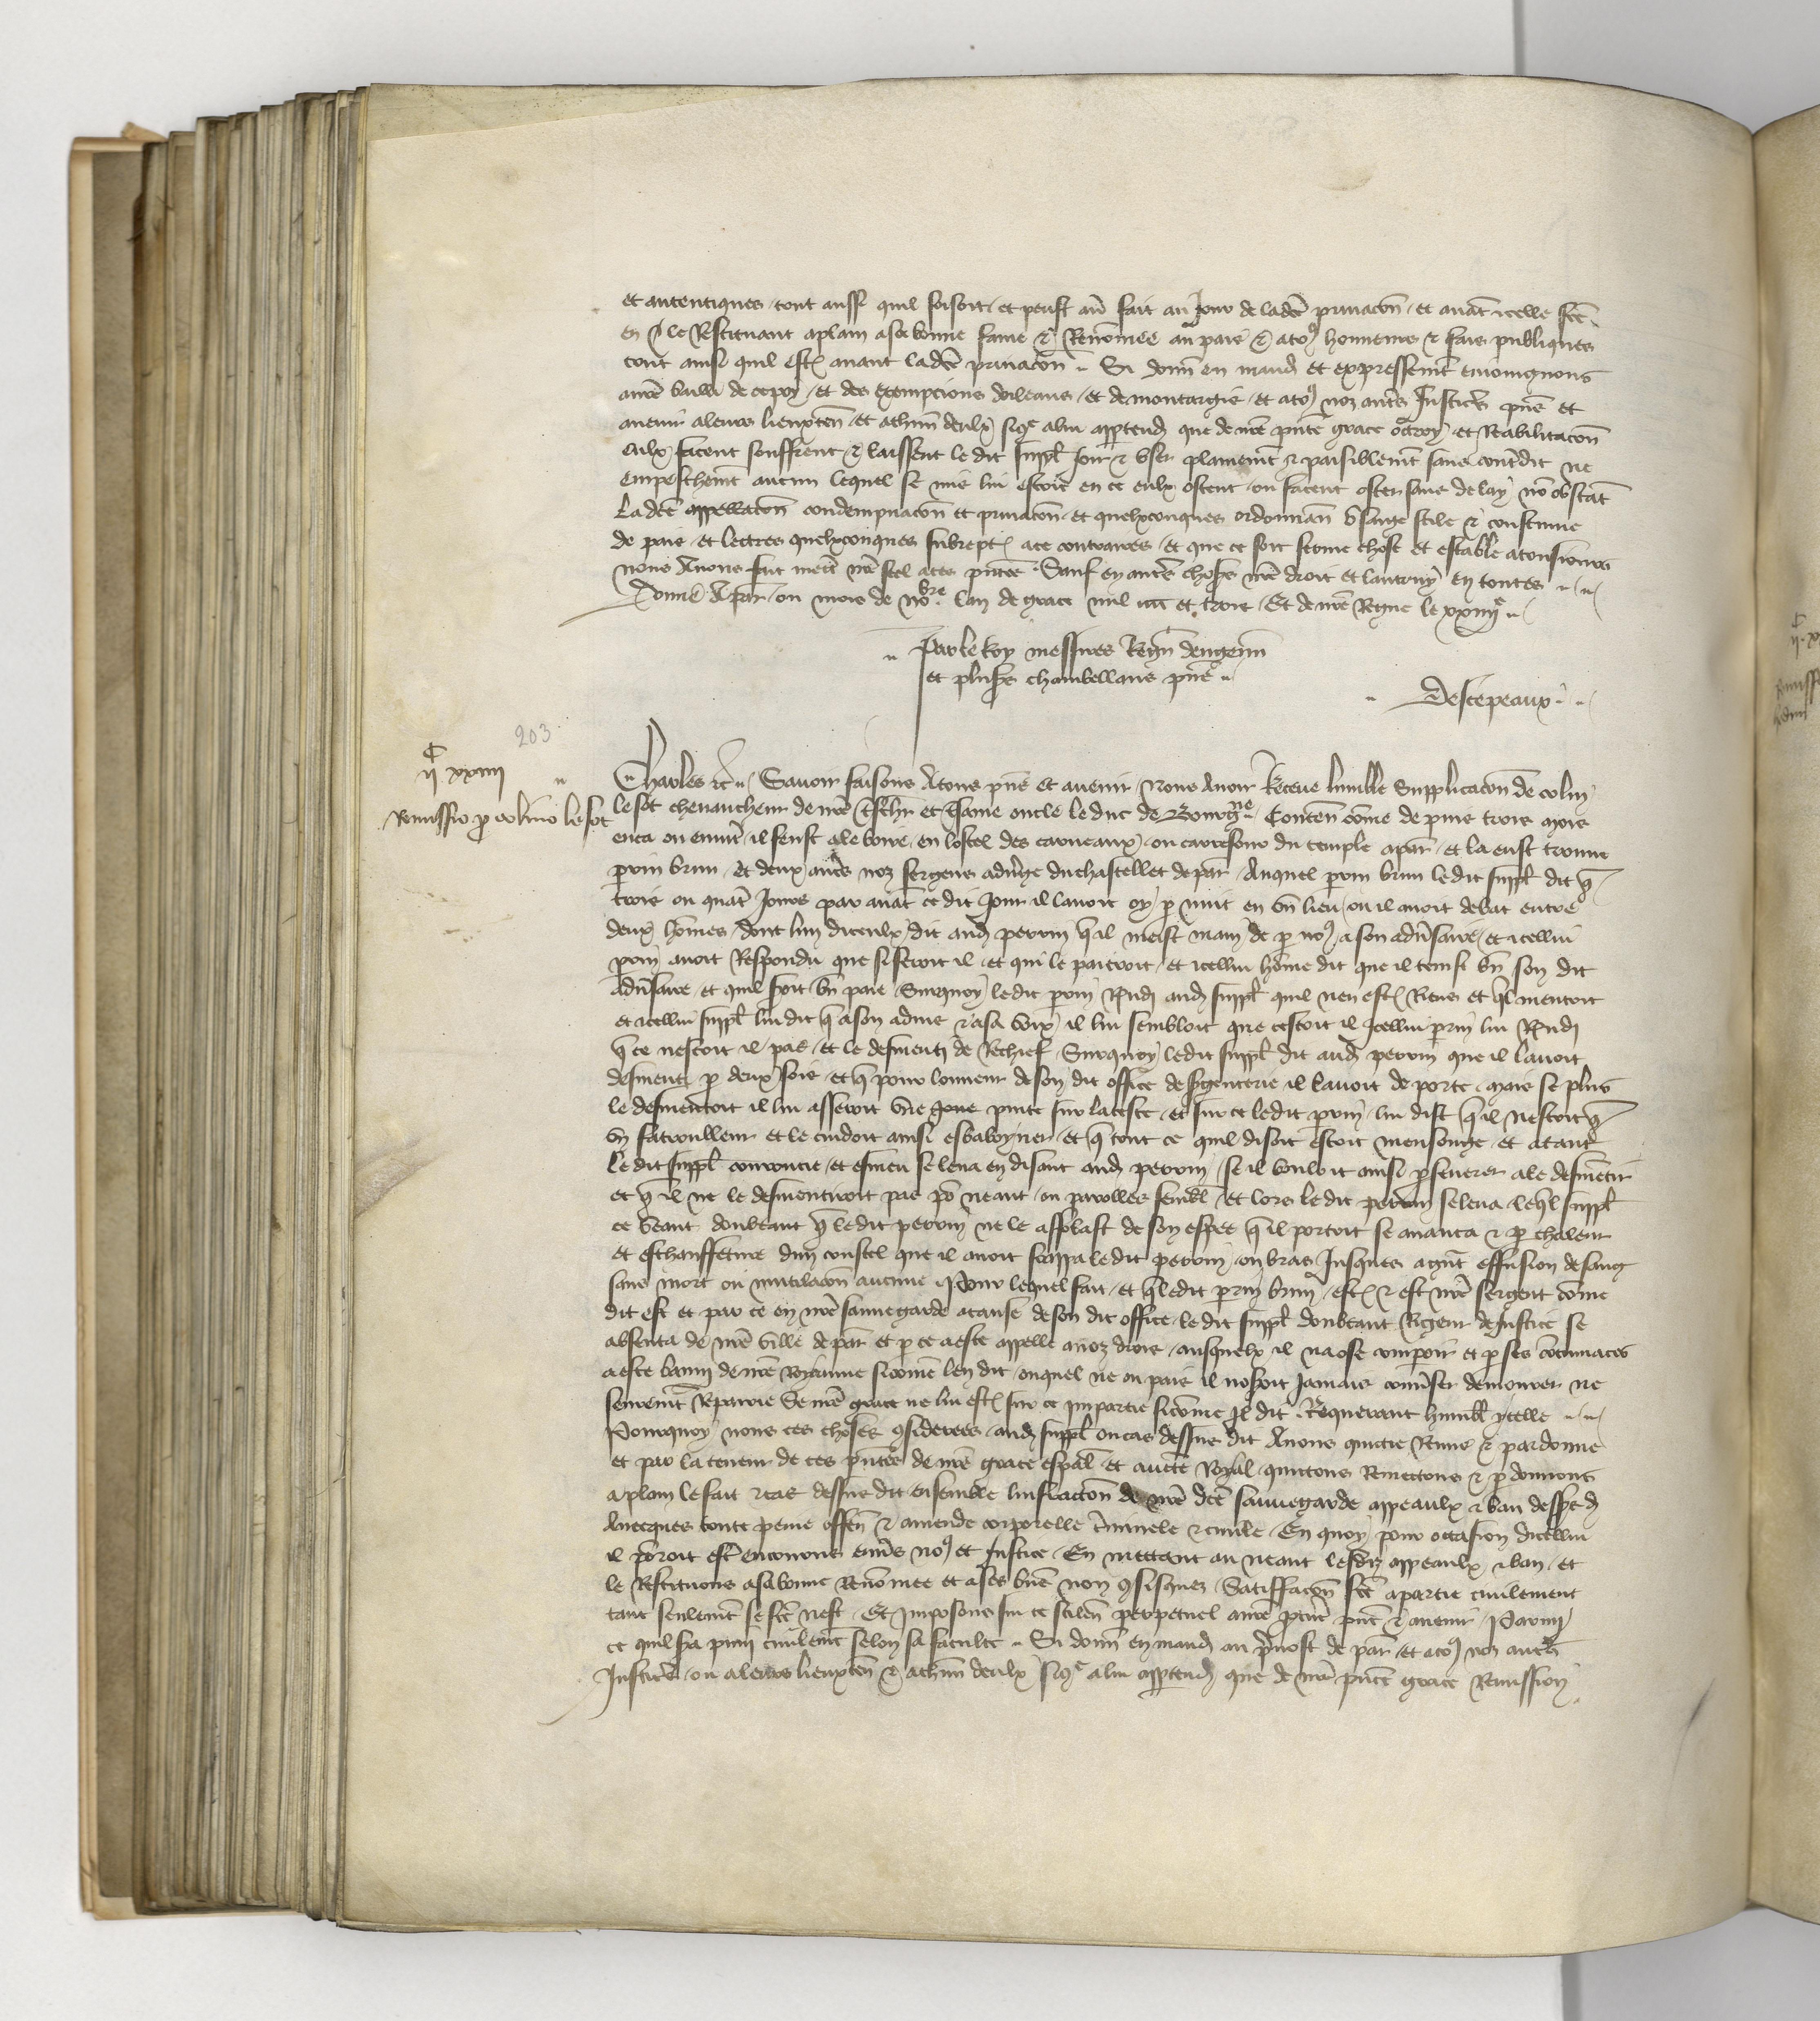 et autentiques tout aussi quil faisoit et peust au͞ fait au jour de ladc͞e privac͞on et avat͞ icelle fc͞e
en le Restituant a plain a sa bonne fame & Reno͞mee au païs & a to9 honneurs & fais publiques
tout ainsi quil estoit avant ladc͞e privac͞on Si donn͞ en mand et expressem͞t enioingnons
au bailli de cepoy et des exempcions dorleans et de montargis et a to9 noz autr͞s Justic͞rs pns͞ et
avenir a leurs lieuxten͞ et a chun͞ deulx si co͞e a lui app͞tendra que de nr͞e pn͞te grace octroy et Reabilitac͞on
eulx facent seuffrent & laissent le dit suppl͞ Joir & user plainem͞t & paisiblem͞t sans cont͞dit ne
empeschem͞t aucun lequel se mis lui estoit en ce eulx ostent ou facent oster sans delay no͞ obstat͞
ladc͞e appellac͞on condempnac͞on et privac͞on et quelxconques ordonnan͞ usaige stile & coustume
de païs et lectres quelxconques subrept a ce contraires et que ce soit ferme chose et estable a tousiours
nous Avons fait mect͞r nr͞e seel a ces pn͞tes Sauf en autr͞s choses nr͞e droit et lautruy en toutes
Donne A par͞ ou mois de nobre Lan de grace mil iiiic et trois Et de nr͞e Regne le xxiiiie
Par le Roy messires Regn͞ dengenn͞
et plus͞rs chambellans pns͞
Descepeaux
203
iic xxiiii
Remissio p colino le sot
Charles &c Savoir faisons A tous pns͞ et avenir Nous Avoir Receue lumble Supplicac͞on de colin
le sot chevaucheur de nr͞e tsch͞r et tsame oncle le duc de Bourgne Conten͞ co͞me de puis trois mois
enca ou environ il feust ale boire en lostel des carneaux ou carrefour du temple a par͞ et la eust trouve
prin brun et deux autr͞s noz sergens a verge du chastellet de par͞ Auquel prin brun le dit suppl͞ dit q͞
trois ou quat͞ Jours par avat͞ ce dit Jour il lavoit oy p nuit en un͞ lieu ou il avoit debat entre
deux ho͞mes dont lun diceulx dit aud perrin q͞ il meist main de p no9 a son adv͞saire et icellui
prin avoit Respondu que si feroit il et qui le paieroit et icellui ho͞me dit que il tenist bn͞ son dit
adv͞saire et quil s͞roit bn͞ paie Surquoy le dit prin Rn͞di aud suppl͞ quil nen estoit Riens et ql͞ mentoit
et icellui suppl͞ lui dit q͞ a son advis & a sa voix il lui sembloit que cestoit il Icellui prin lui Rn͞di
q͞ ce nestoit il pas et le desmenti de Rechief Surquoy ledit suppl͞ dit aud perrin que il lavoit
desmenti p deux fois et q͞ pour lonneur de son dit office de sergenterie il lavoit deporte mais se plus
le desmentoit il lui asserroit une pinte sur la teste et sur ce ledit prin lui dist q͞ il nestoit q͞
un fatroulleur et le cuidoit ainsi et q͞ tout ce quil disoit estoit mensonge et atant
le dit suppl͞ courroucie et esmeu se leva en disant aud perrin se il vouloit ainsi p͞severer a le desme͞tir
et q͞ il ne le desmentiroit pas po͞ neant ou parolles sembl͞ et lors le dit perrin se leva leql͞ suppl͞
ce veant doubtant q͞ le dit perrin ne le affolast de son espee q͞ il portoit se avanca & p chaleur
et eschauffeture dun coustel que il avoit frappa le dit perrin ou bras Jusques a gn͞t effusion de sang
sans mort ou mutilac͞on aucune Pour lequel fait et q͞ ledit prin brun estoit & est nr͞e sergent co͞me
dit est et par ce en nr͞e sauvegarde a cause de son dit office le dit suppl͞ doubtant Rigeur de Justice se
absenta de nr͞e ville de par͞ et p ce a este appelle a noz drois ausquelx il na ose comparoir et p ses co͞tumaces
a este banni de nr͞e Royaume sico͞me len dit ouquel ne ou païs il noseroit Jamais conv͞ser demourer ne
seurem͞t Repairer Se nr͞e grace ne lui estoit sur ce impartie sico͞me il dit Requerant humbl͞ ycelle
Pourquoy nous ces choses 9siderees aud suppl͞ ou cas dessus dit Avons quicte Remis & pardonne
et par la teneur de ces pn͞tes de nr͞e grace espal͞ et aucte͞ Royal quictons Remectons & p donnons
a plain le fait & cas dessus dit ensemble linfracc͞on de nr͞e dc͞e sauvegarde appeaulx & ban dessusd
Avecques toute peine offen͞ & amende corporelle c͞minele & civile En quoy pour occasion dicellui
il po͞roit est͞ encourus env͞s no9 et Justice En mettant au neant lesdiz appeaulx & ban et
le Restituons a sa bonne Reno͞mee et a ses bn͞s non 9fisquez Satiffac͞on fc͞e a partie civilement
tant seulem͞t se fc͞e nest Et Imposons sur ce silen͞ perpetuel a nr͞e p͞cur͞ pn͞t & avenir Parmi
ce quil s͞ra puni civilem͞t selon sa faculte Si donn͞ en mand au p͞vost de par͞ et a to9 noz autr͞s
Justic͞rs ou a leurs lieuxten͞ & a chun͞ deulx si co͞e a lui app͞tendra que de nr͞e pn͞te grace Remission